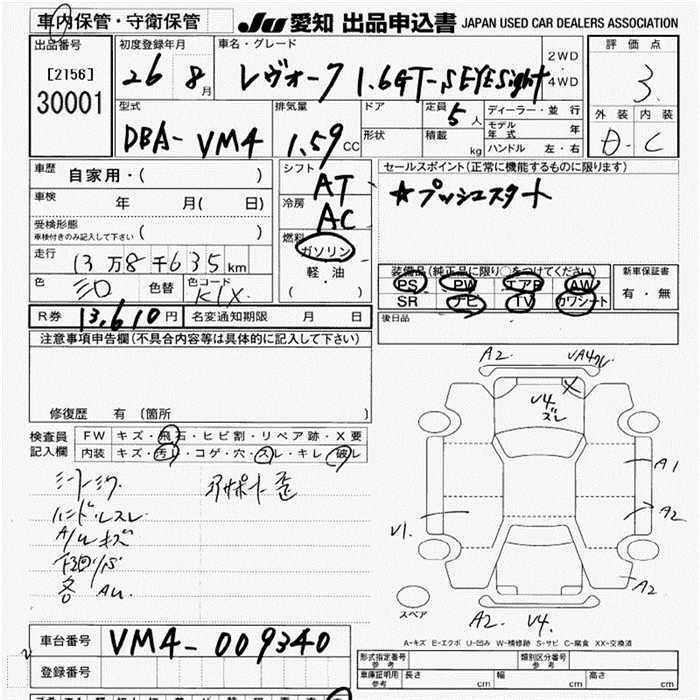 車内保管・守衛保管
JU 愛知 出品申込書 JAPAN USED CAR DEALERS ASSOCIATION
出品番号
[2156]
30001
初度登録年月
26 8月
車名・グレード
レヴォーグ 1.6GT-S EYESight
2WD
4WD
評価点
3
外装 内装
C
型式
DBA- VM4
排気量
1.59 CC
ドア
形状
定員 5 人
積載 kg
ディーラー・並行
モデル年式 年
ハンドル 左・右
車歴 自家用・( )
車検 年 月( 日)
受検形態
車検付きのみ記入して下さい ( )
走行 13万8千635km
色
色替
色コード
K1X
シフト
AT
冷房
AC
燃料
ガソリン
軽・油
( )
セールスポイント(正常に機能するものに限ります)
★プッシュスタート
装備品(純正品に限り○をつけてください)
PS PW エアB AW
SR ナビ TV カワシート
新車保証書
有・無
後日品
R券 13,610円 名変通知期限 月 日
注意事項申告欄(不具合内容等は具体的に記入して下さい)
修復歴 有 (箇所 )
検査員記入欄
FW キズ・飛石・ヒビ割・リペア跡・X要
内装 キズ・汚レ・コゲ・穴・スレ・キレ・破レ
シートシワ
ハンドルスレ
A/Wキズ
下回りS
各 AU.
A2. VA4ワレ
V4.
ズレ
X
A1
A2
V1.
A2
A2. V4.
スペア
A-キズ E-エクボ U-凹み W-補修跡 S-サビ C-腐食 XX-交換済
車台番号 VM4-009340
登録番号
形式指定番号 参考
類別区分番号 参考
車庫証明用 参考 長さ cm 幅 cm 高さ cm